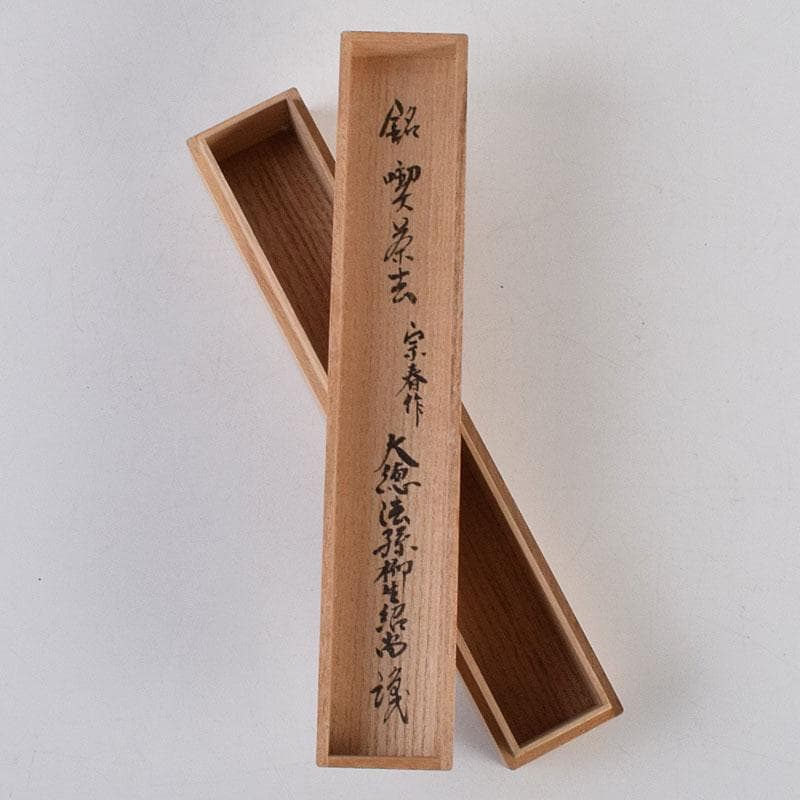 銘 喫茶去
宗春作
大德法孫柳生紹尚識